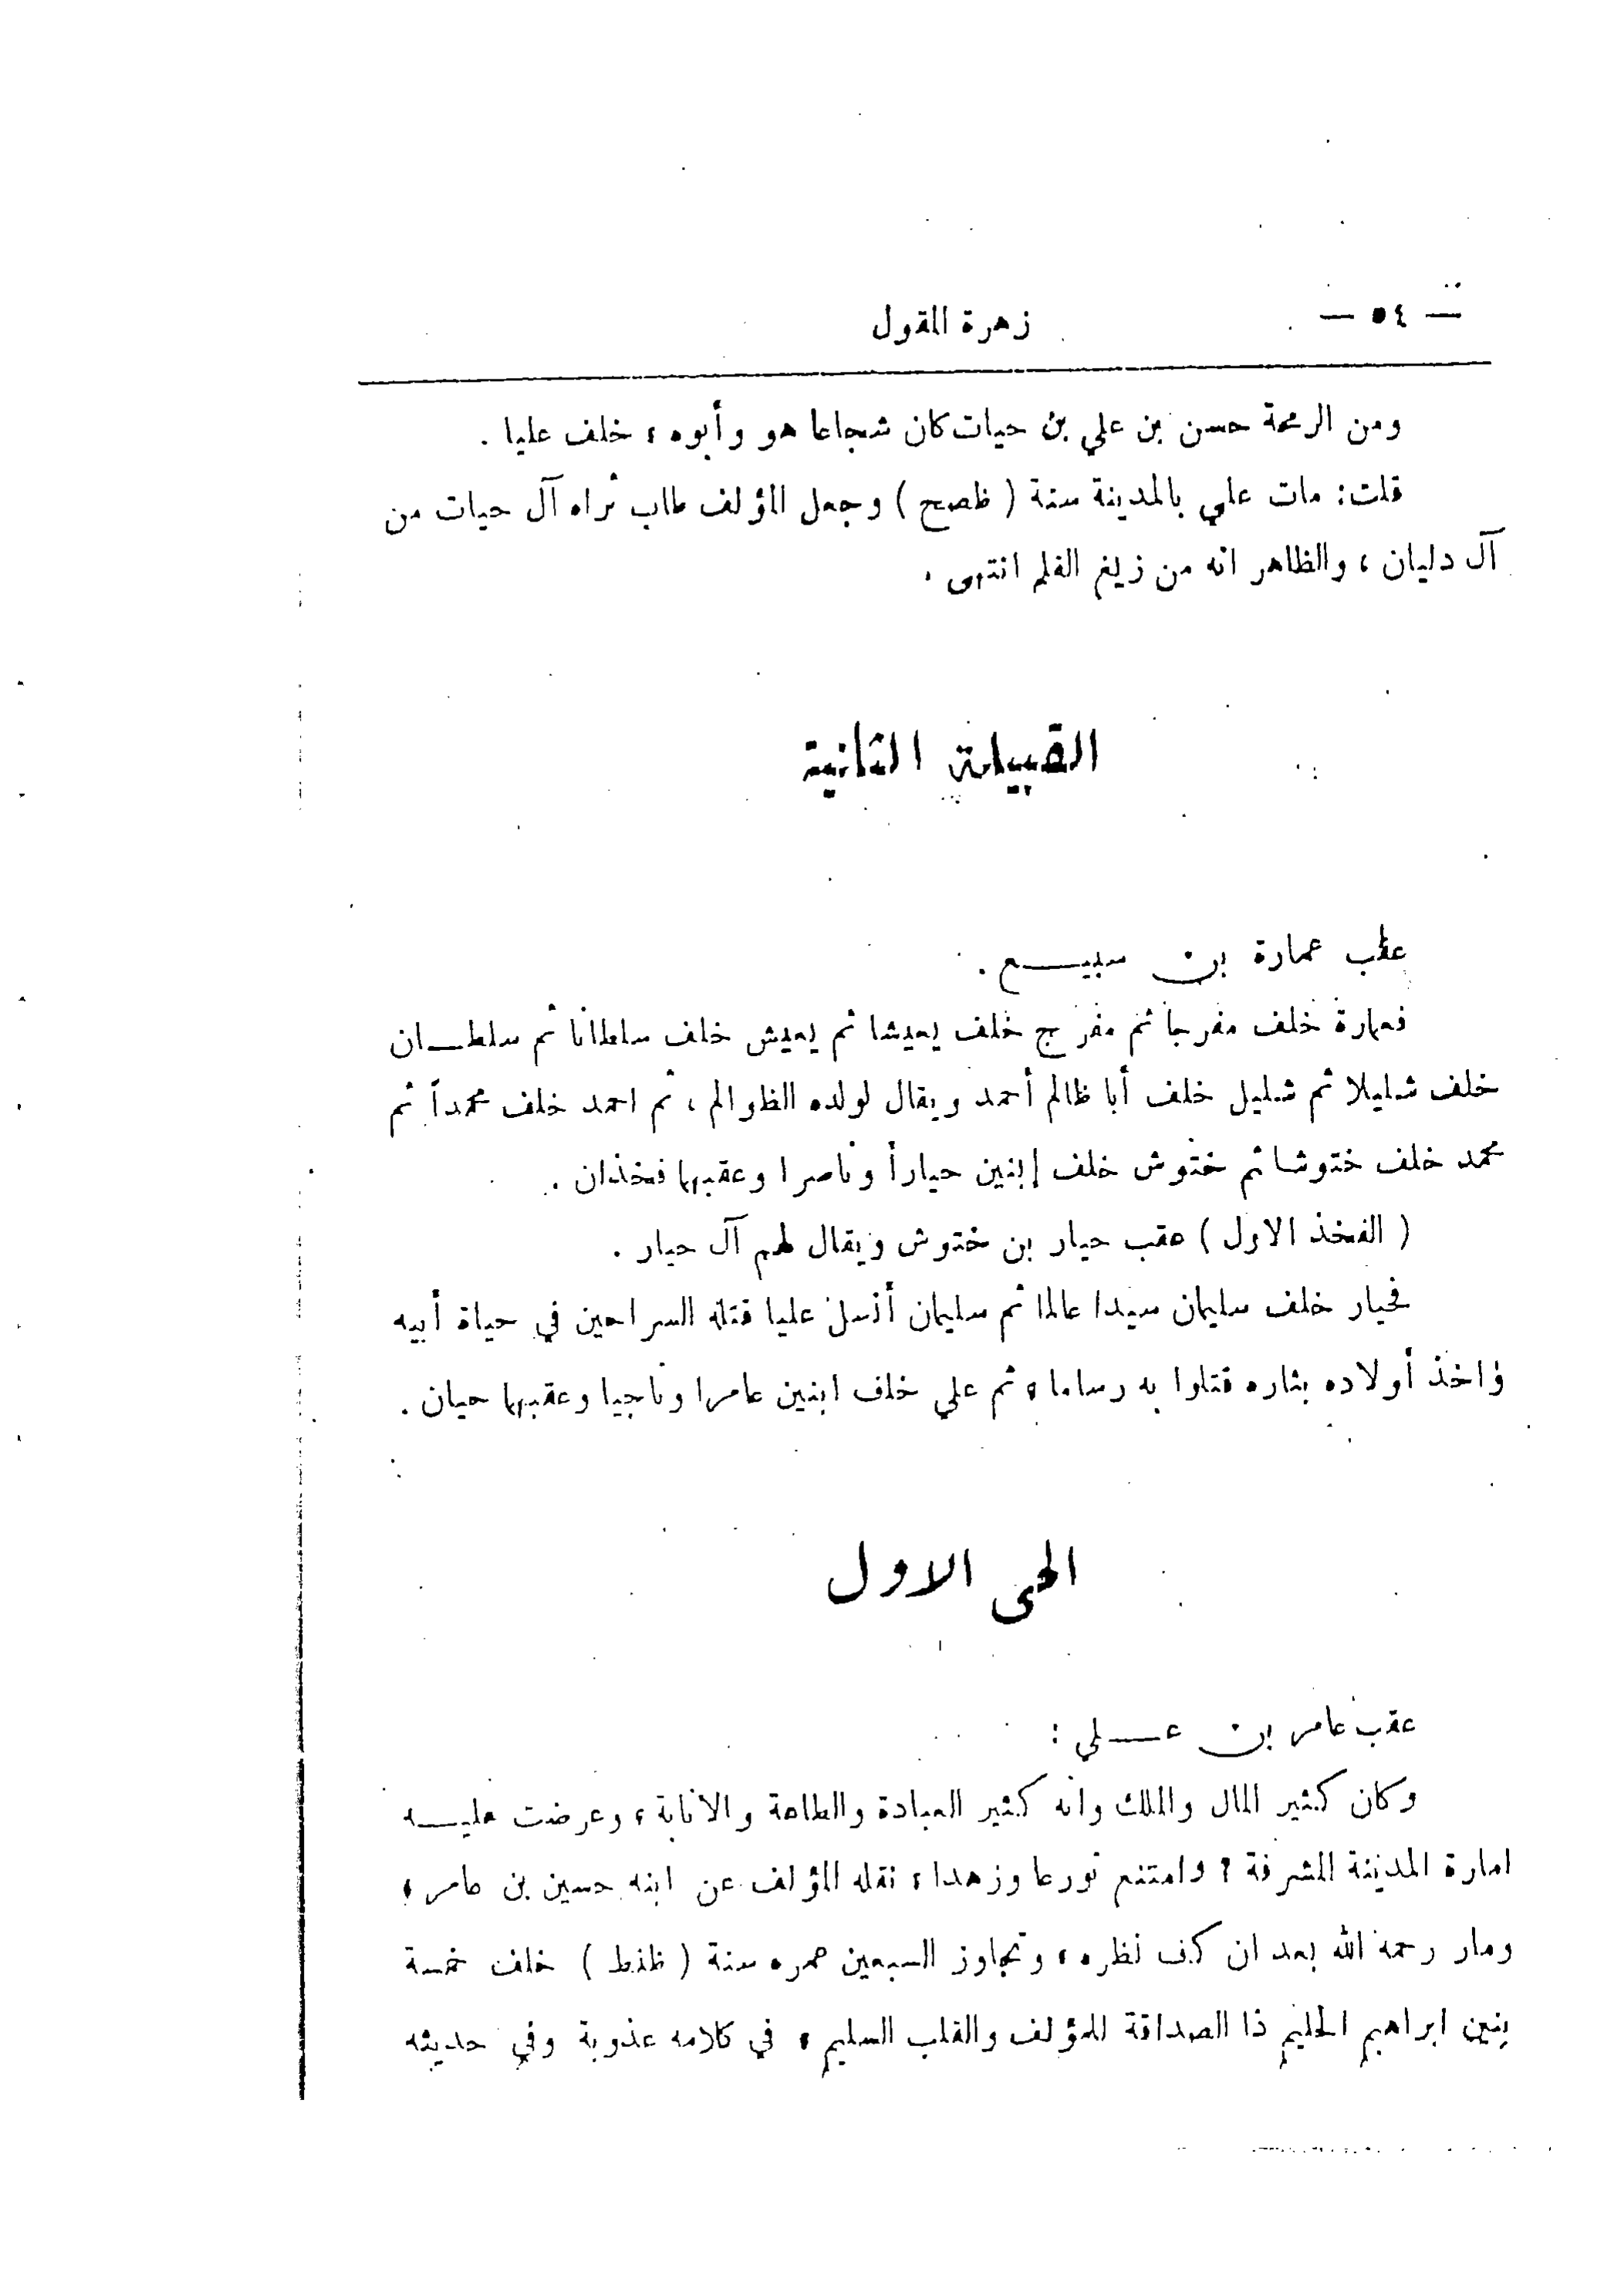 — ٥٤ —
زهرة المقول
ومن الرمحة حسن بن علي بن حيات كان شجاعا هو وأبوه ، خلف عليا .
قلت: مات علي بالمدينة سنة ( ظصح ) وجعل المؤلف طاب ثراه آل حيات من
آل دليان ، والظاهر انه من زيغ القلم انتهى .
القبيلة الثانية
عقب عمارة بن سبيـــع .
فعمارة خلف مفرجا ثم مفرج خلف يعيشا ثم يعيش خلف سلطانا ثم سلطـــان
خلف شليلا ثم شليل خلف أبا ظالم أحمد ويقال لولده الظوالم ، ثم احمد خلف محمداً ثم
محمد خلف ختوشا ثم ختوش خلف إبنين حياراً وناصرا وعقبهما فخذان .
( الفخذ الاول ) عقب حيار بن ختوش ويقال لهم آل حيار .
فحيار خلف سليمان سيدا عالما ثم سليمان أنسل عليا قتله السراحين في حياة أبيه
واخذ أولاده بثاره قتلوا به رساما ، ثم علي خلف ابنين عامرا وناجيا وعقبهما حيان .
الحى الاول
عقب عامر بن عـــلي :
وكان كثير المال والملك وانه كثير العبادة والطاعة والانابة ، وعرضت عليـــه
امارة المدينة المشرفة ? وامتنع تورعا وزهدا ، نقله المؤلف عن ابنه حسين بن عامر ،
ومار رحمه الله بعد ان كف نظره ، وتجاوز السبعين عمره سنة ( ظفط ) خلف خمسة
بنين ابراهيم الحليم ذا الصداقة للمؤلف والقلب السليم ، في كلامه عذوبة وفي حديثه